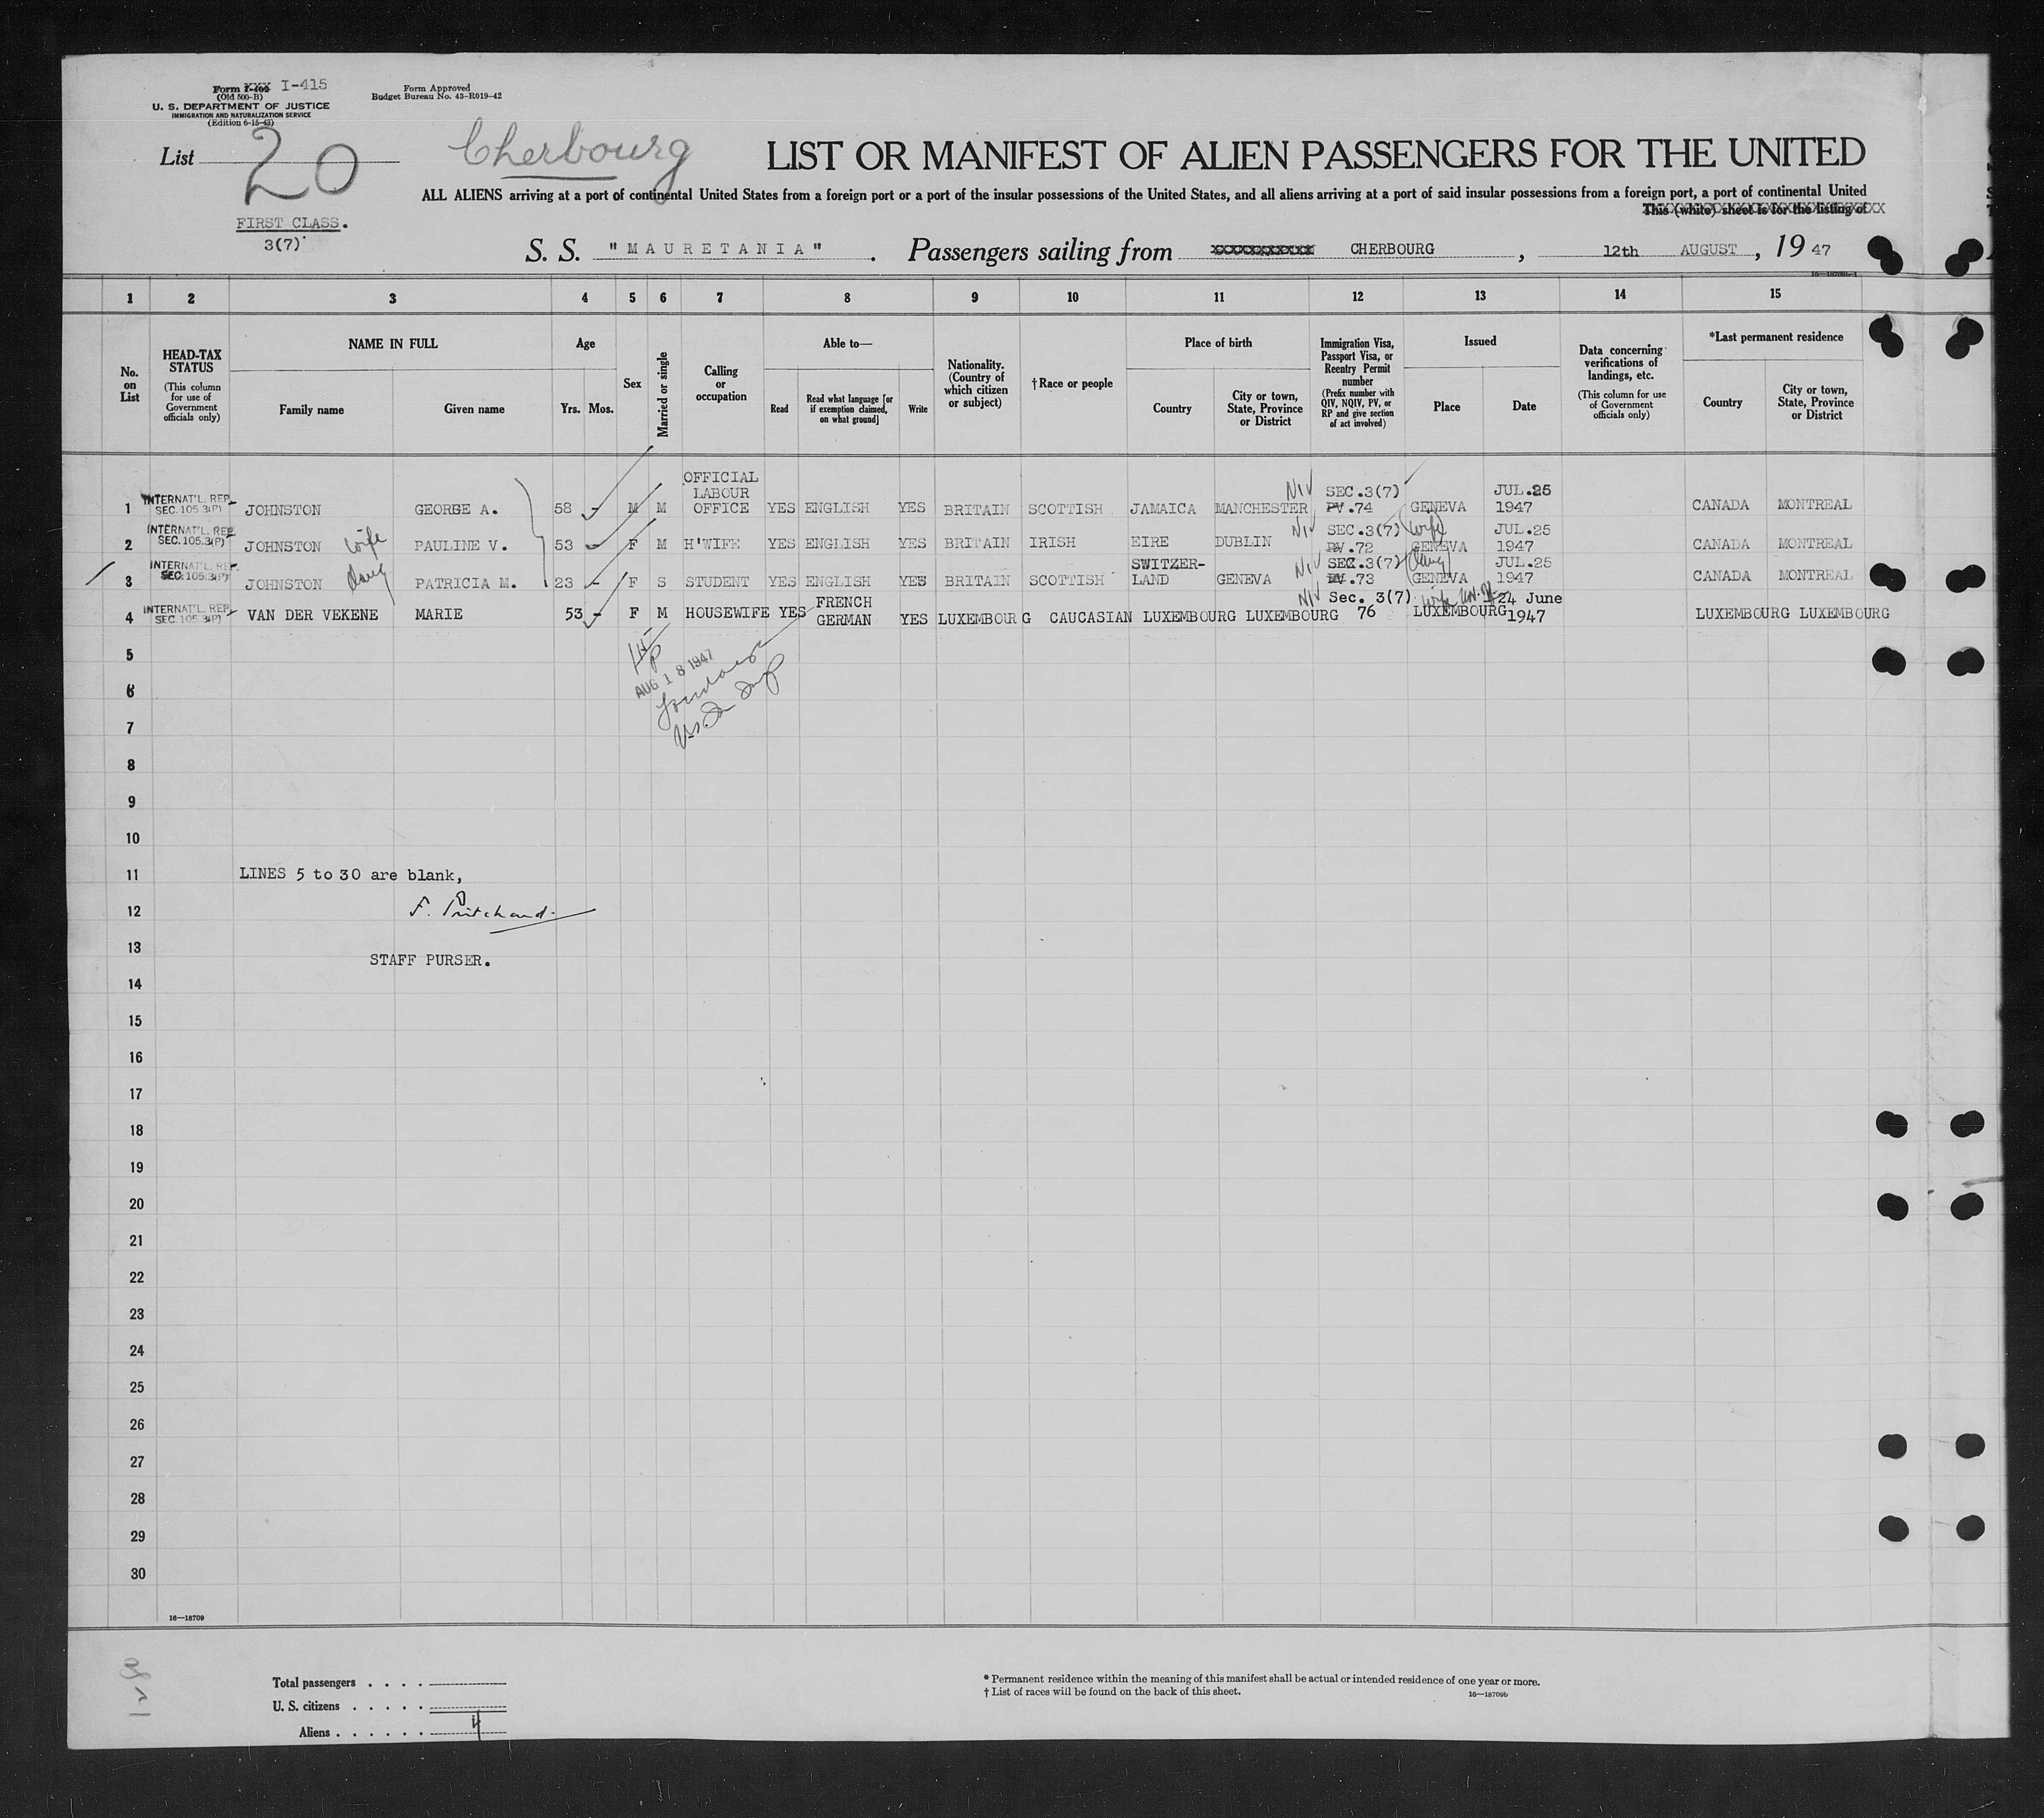 Form I-402 I-415
(Old 500-B)
U. S. DEPARTMENT OF JUSTICE
IMMIGRATION AND NATURALIZATION SERVICE
(Edition 6-15-43)
Form Approved
Budget Bureau No. 43-R019-42
List 20
Cherbourg
LIST OR MANIFEST OF ALIEN PASSENGERS FOR THE UNITED
ALL ALIENS arriving at a port of continental United States from a foreign port or a port of the insular possessions of the United States, and all aliens arriving at a port of said insular possessions from a foreign port, a port of continental United
This (white) sheet is for the listing of
FIRST CLASS.
3(7)
S. S. "MAURETANIA". Passengers sailing from CHERBOURG, 12th AUGUST, 19 47
1 2 3 4 5 6 7 8 9 10 11 12 13 14 15
No. on List
HEAD-TAX STATUS
(This column for use of Government officials only)
NAME IN FULL
Family name
Given name
Age
Yrs. Mos.
Sex
Married or single
Calling or occupation
Able to—
Read
Read what language [or if exemption claimed, on what ground]
Write
Nationality. (Country of which citizen or subject)
†Race or people
Place of birth
Country
City or town, State, Province or District
Immigration Visa, Passport Visa, or Reentry Permit number
(Prefix number with QIV, NQIV, PV, or RP and give section of act involved)
Issued
Place
Date
Data concerning verifications of landings, etc.
(This column for use of Government officials only)
*Last permanent residence
Country
City or town, State, Province or District
1 INTERNAT'L. REP. SEC. 105.3(P) JOHNSTON GEORGE A. 58 M M OFFICIAL LABOUR OFFICE YES ENGLISH YES BRITAIN SCOTTISH JAMAICA MANCHESTER NIV SEC.3(7) PV.74 GENEVA JUL.25 1947 CANADA MONTREAL
2 INTERNAT'L. REP. SEC. 105.3(P) JOHNSTON wife PAULINE V. 53 F M H'WIFE YES ENGLISH YES BRITAIN IRISH EIRE DUBLIN NIV SEC.3(7) PV.72 (wife) GENEVA JUL.25 1947 CANADA MONTREAL
3 INTERNAT'L. REP. SEC. 105.3(P) JOHNSTON Daug PATRICIA M. 23 F S STUDENT YES ENGLISH YES BRITAIN SCOTTISH SWITZER-LAND GENEVA NIV SEC.3(7) PV.73 (Daug) GENEVA JUL.25 1947 CANADA MONTREAL
4 INTERNAT'L. REP. SEC. 105.3(P) VAN DER VEKENE MARIE 53 F M HOUSEWIFE YES FRENCH GERMAN YES LUXEMBOURG CAUCASIAN LUXEMBOURG LUXEMBOURG NIV Sec. 3(7) 76 wife LUXEMBOURG 24 June 1947 LUXEMBOURG LUXEMBOURG
AUG 18 1947
5
6
7
8
9
10
11 LINES 5 to 30 are blank,
12 F. Pritchard.
13 STAFF PURSER.
14
15
16
17
18
19
20
21
22
23
24
25
26
27
28
29
30
16—18709
Total passengers
U. S. citizens
Aliens 4
* Permanent residence within the meaning of this manifest shall be actual or intended residence of one year or more.
† List of races will be found on the back of this sheet.
16—18709b